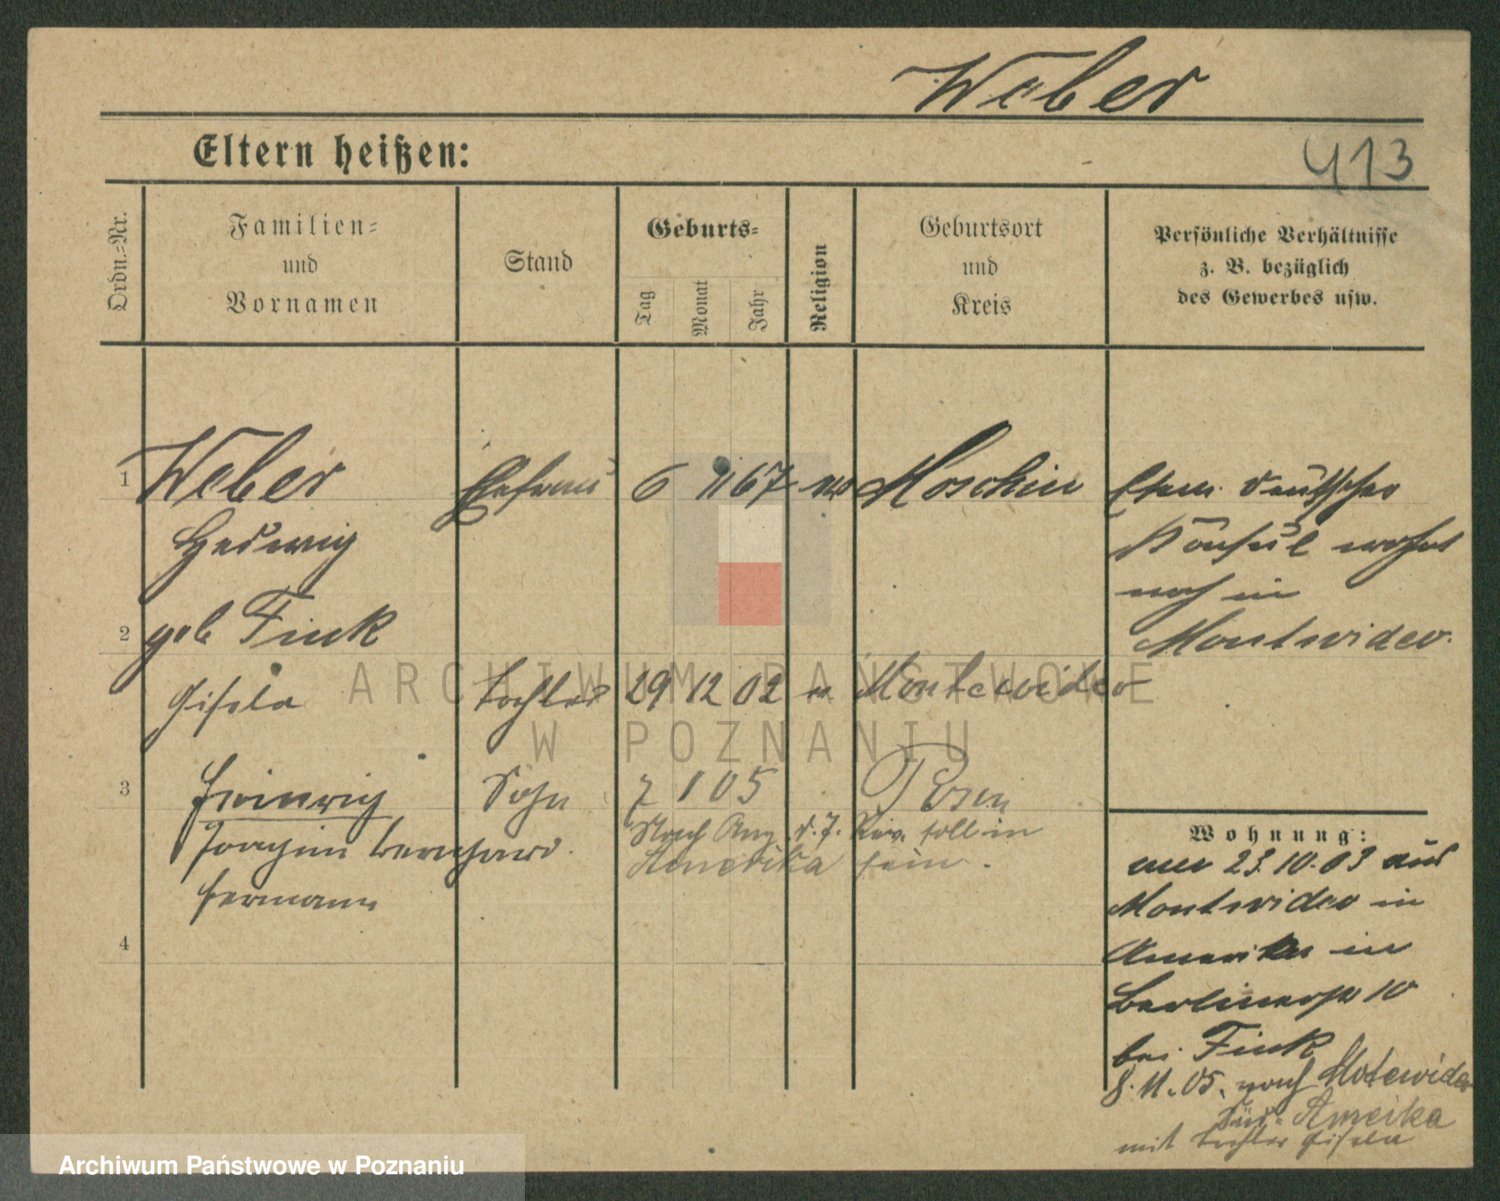 Weber
Eltern heißen:
413
Ordn.-Nr.
Familien-
und
Vornamen
Stand
Geburts-
Tag
Monat
Jahr
Religion
Geburtsort
und
Kreis
Persönliche Verhältnisse
z. B. bezüglich
des Gewerbes usw.
1 Weber Ehefrau 6 11 67 Moschin
Hedwig
2 geb Fink
Gisela Tochter 29 12 02 Montewideo
3 Heinrich Sohn 7 1 05 Posen
Joachim Bernhard
Hermann
Nach Ang. d. J. Rev. soll in
Amerika sein.
4
Ehem. deutscher
Konsul wohnt
noch in
Montwideo.
Wohnung:
23.10.03 aus
Montwideo in
Amerika in
Berlinerstr 10
bei Fink
8.11.05. nach Motewideo
Süd-Ameika
mit Tochter Gisela
ARCHIWUM PAŃSTWOWE
W POZNANIU
Archiwum Państwowe w Poznaniu